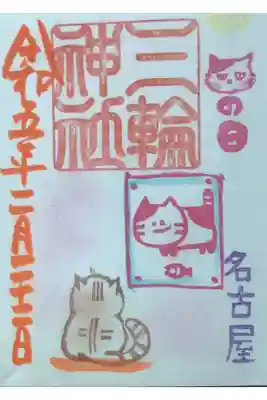 の日
三輪
神社
名古屋
令和五年二月二十二日